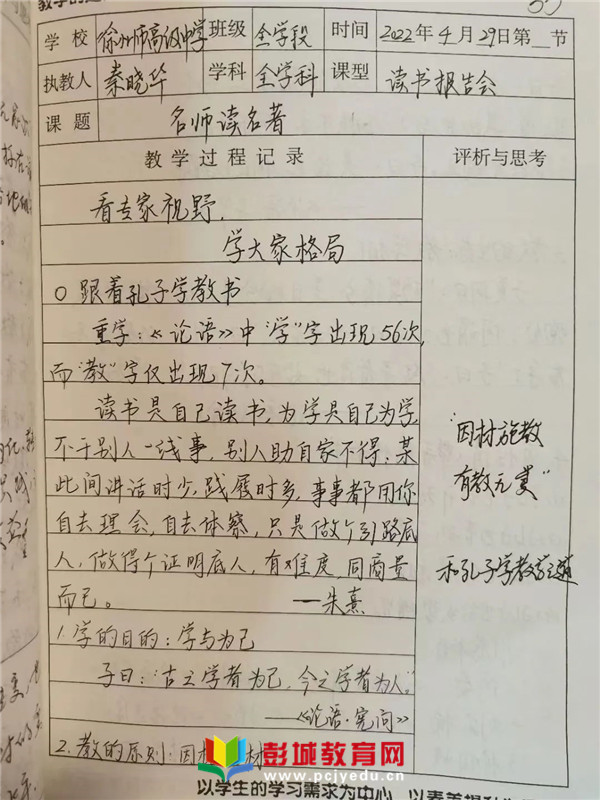 学校 徐州市高级中学 班级 全学段 时间 2022年4月29日第__节
执教人 秦晓华 学科 全学科 课型 读书报告会
课题 名师读名著
教学过程记录 评析与思考
看专家视野,
学大家格局
○ 跟着孔子学教书
重学:《论语》中"学"字出现56次,
而"教"字仅出现7次。
读书是自己读书,为学是自己为学,
不干别人一线事,别人助自家不得;某
此间讲话时少,践履时多,事事都用你
自去理会,自去体察,只是做个引路底
人,做得个证明底人,有难度,同商量
而已。 ——朱熹
1.学的目的:学与为己
子曰:"古之学者为己,今之学者为人。"
——《论语·宪问》
2.教的原则:因材 材
"因材施教
有教无类"
和孔子学教学之道
彭城教育网
www.pcjyedu.cn
以学生的学习需求为中心